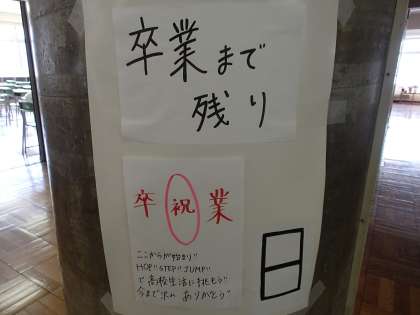 卒業まで
残り
日
卒祝業
ここからが始まり!!
HOP!! STEP!! JUMP!!
で高校生活に挑もう!!
今まで沢山ありがとう♡